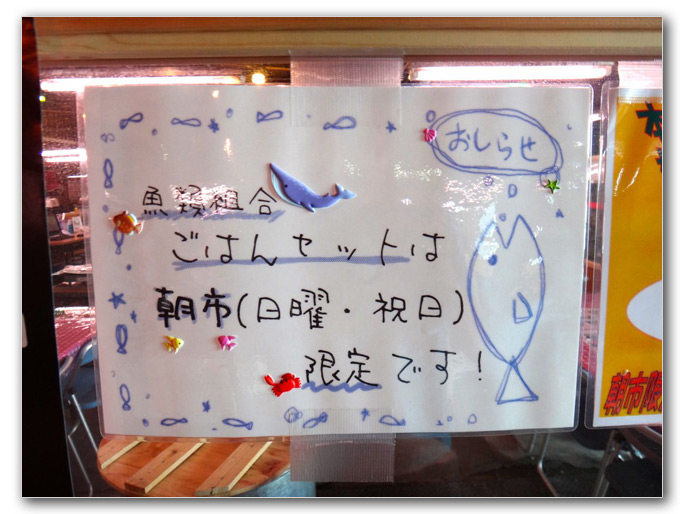 おしらせ
魚類組合
ごはんセットは
朝市(日曜・祝日)
限定です!
朝市限